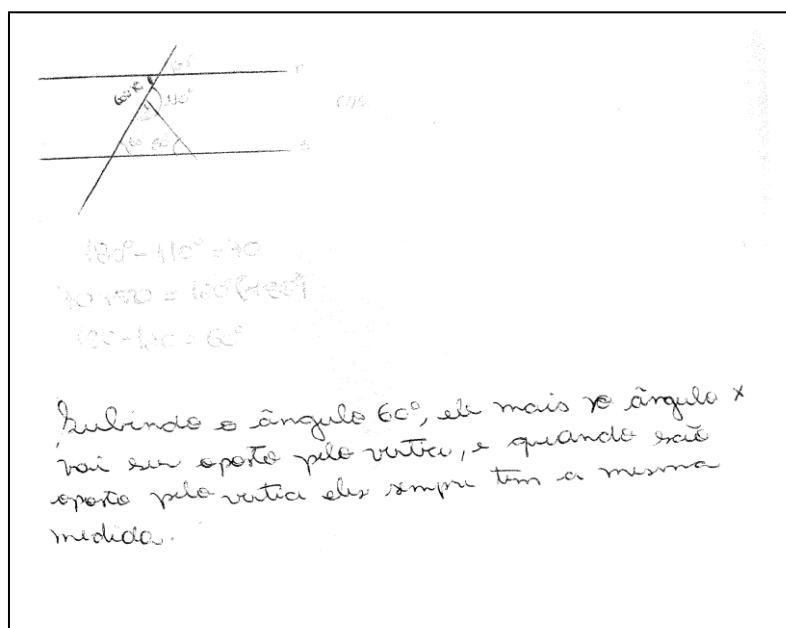 r
110°
s
60 50°
180° - 110° = 70
70 + 50 = 120° (-180°)
180 - 120 = 60°
Subindo o ângulo 60°, ele mais o ângulo x
vai ser oposto pelo vertice, e quando são
oposto pelo vertice eles sempre tem a mesma
medida.